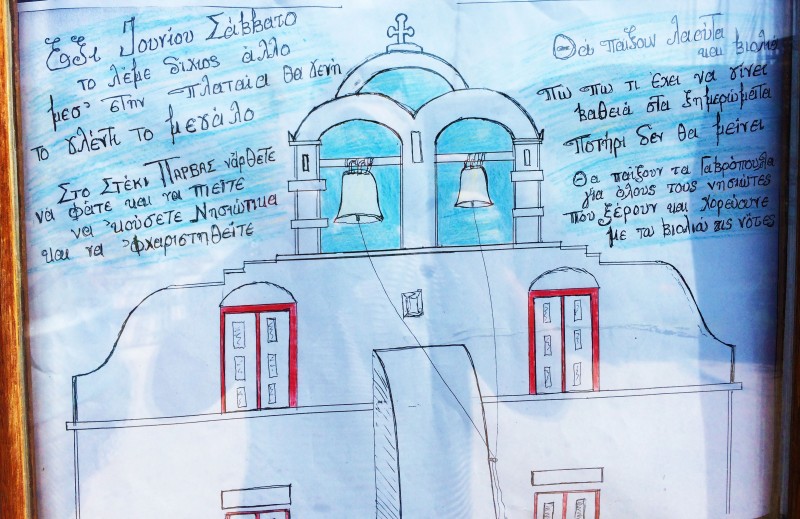 Έξι Ιουνίου Σάββατο
το λέμε δίχως άλλο
μεσ' στην πλατεία θα γενή
το γλέντι το μεγάλο
Στο Στέκι Πάρβας νάρθετε
να φάτε και να πιείτε
να 'κούσετε Νησιώτικα
και να 'φχαριστηθείτε
Θα παίξουν λαούτα
και βιολιά
Πω πω τι έχει να γίνει
βαθειά στα ξημερώματα
Ποτήρι δεν θα μείνει
Θα παίξουν τα Γαβρόπουλα
για όλους τους νησιώτες
που ξέρουν και χορεύουνε
με του βιολιού τις νότες